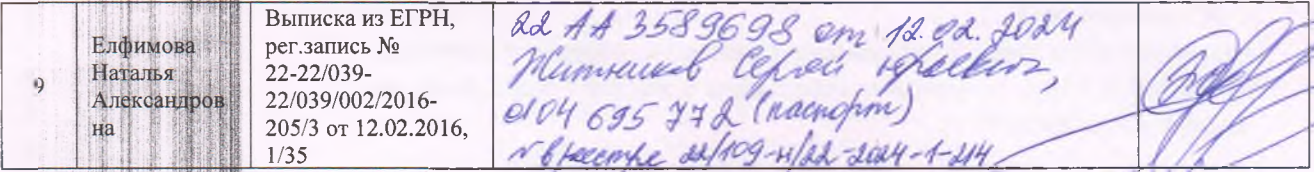 9
Елфимова
Наталья
Александров
на
Выписка из ЕГРН,
рег.запись №
22-22/039-
22/039/002/2016-
205/3 от 12.02.2016,
1/35
22 АА 3589698 от 12.02.2024
Житников Сергей Юрьевич,
0104 695 772 (паспорт)
№ в реестре 22/109-н/22-2024-1-214